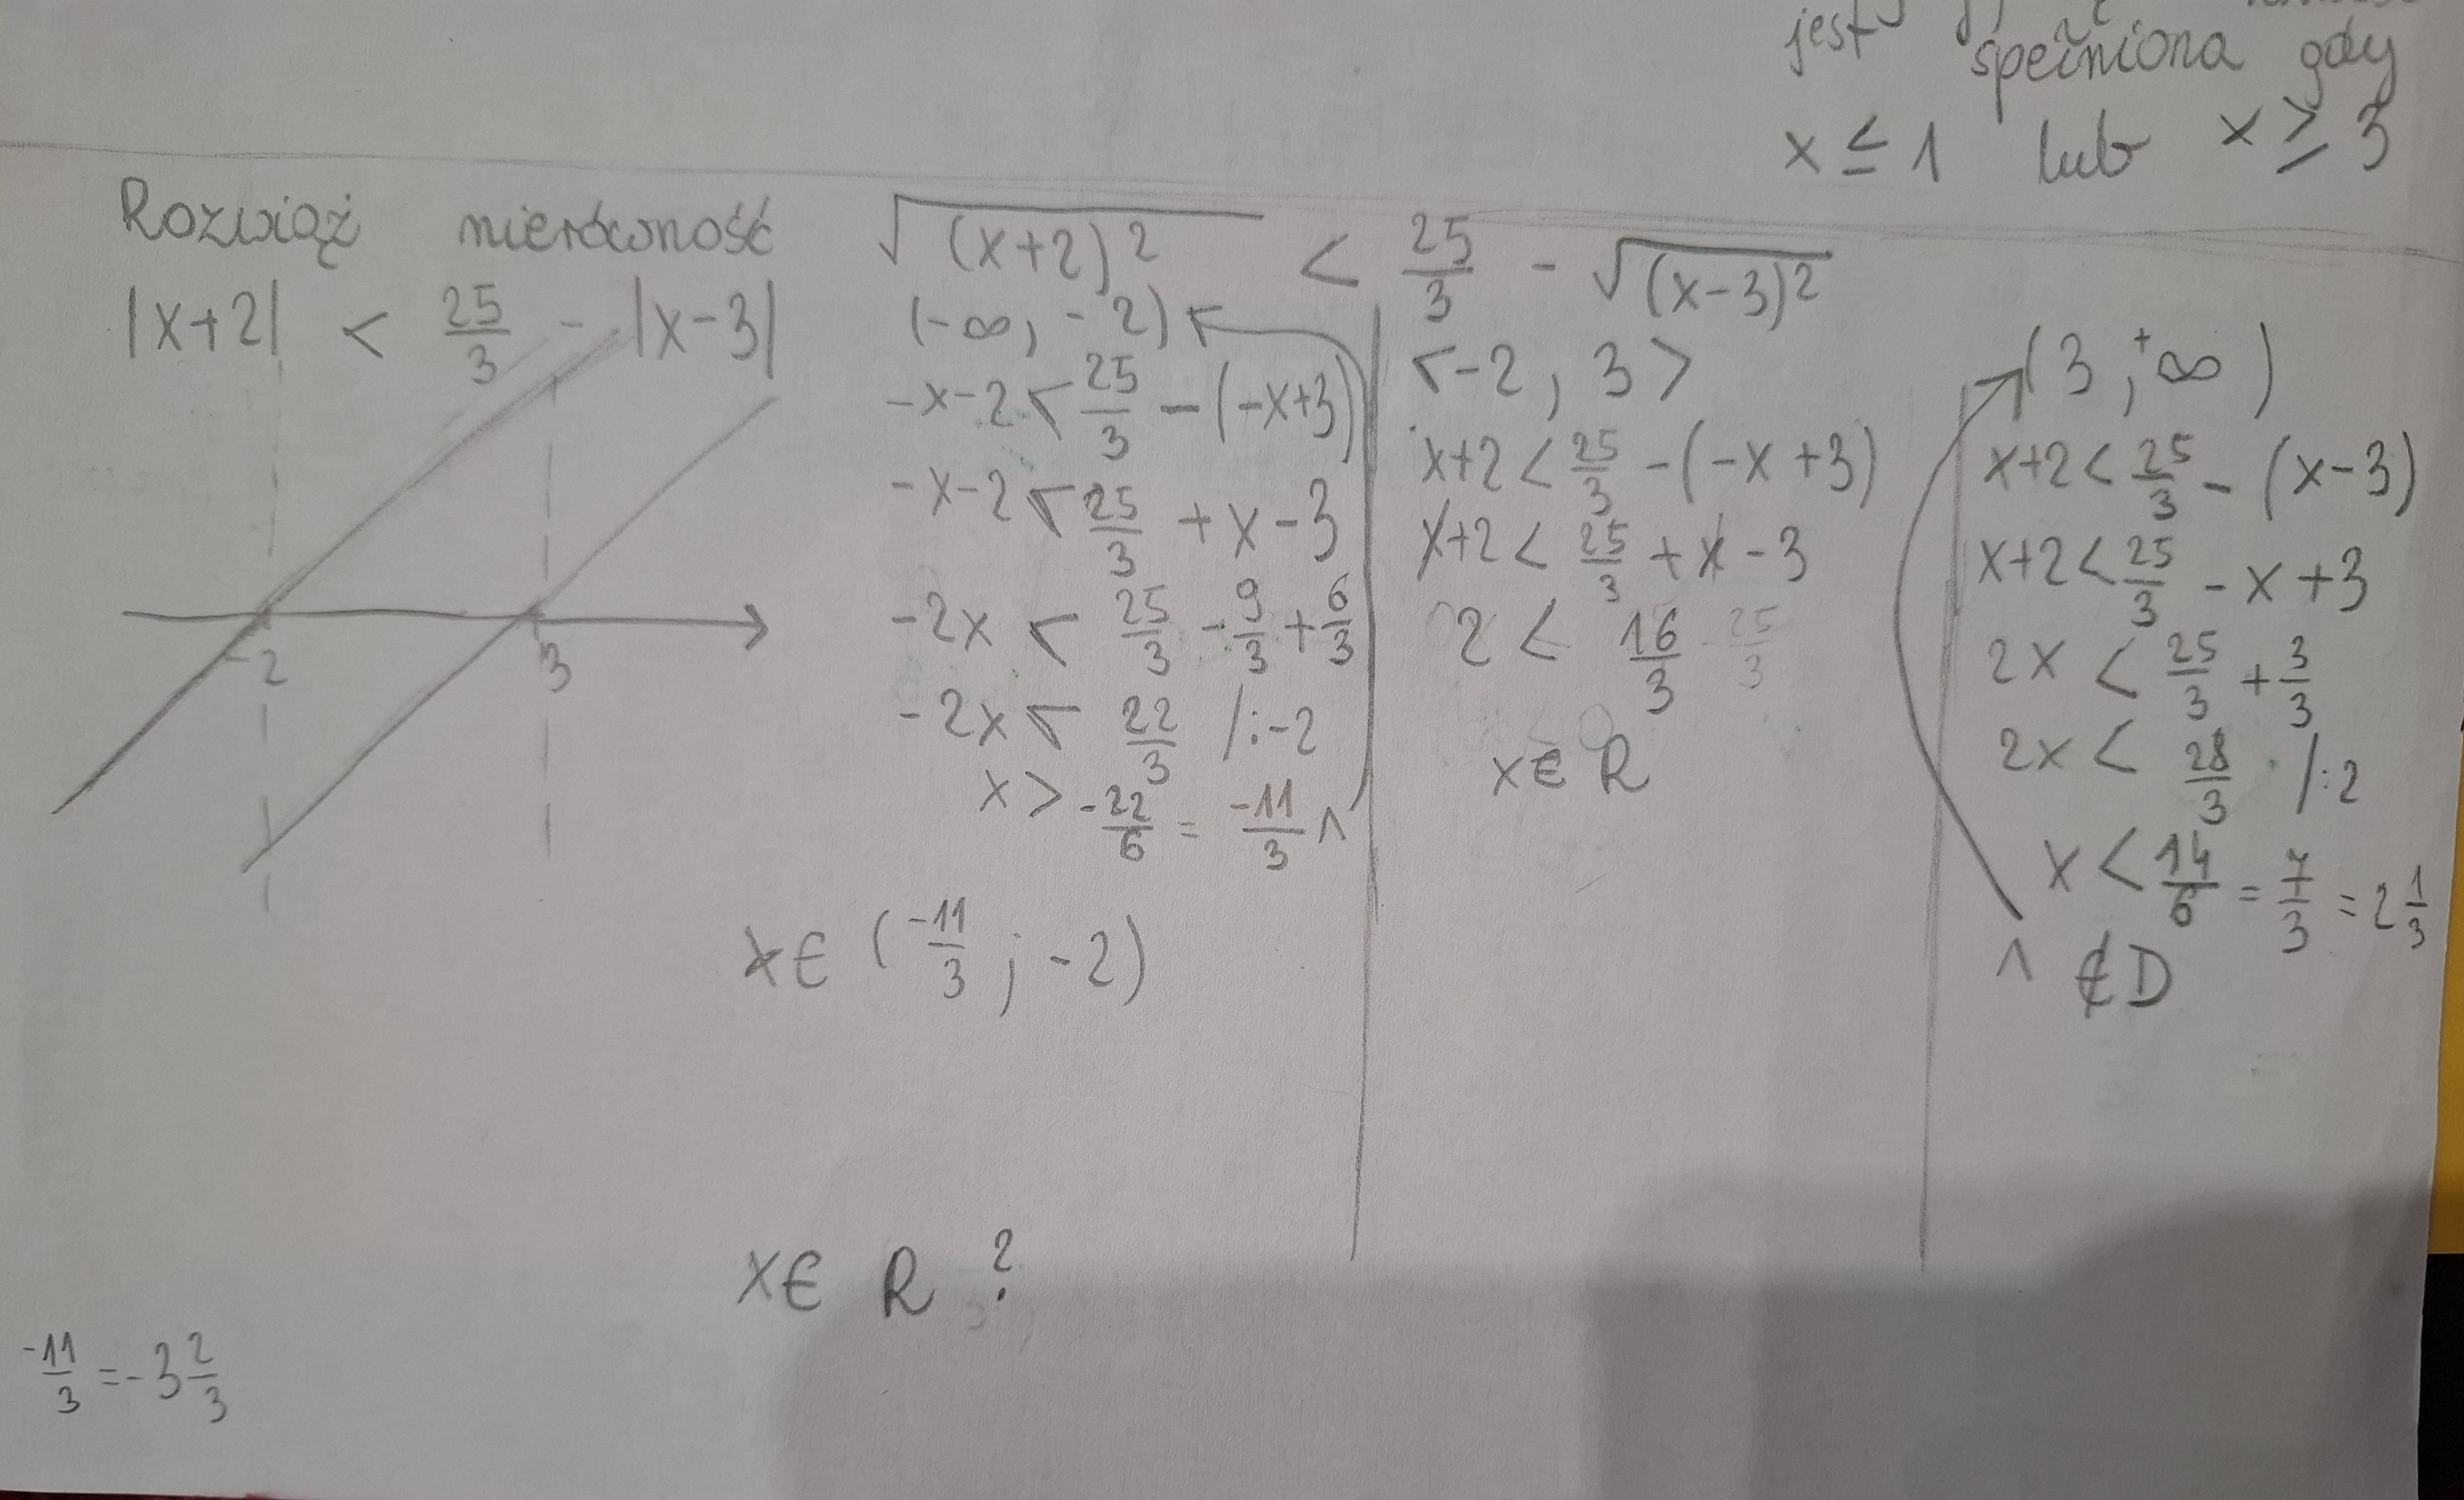 jest
spełniona gdy
x ≤ 1 lub x ≥ 3
Rozwiąż nierówność √(x+2)² < 25/3 - √(x-3)²
|x+2| < 25/3 - |x-3|
-2
3
(-∞, -2)
-x-2 < 25/3 - (-x+3)
-x-2 < 25/3 + x - 3
-2x < 25/3 - 9/3 + 6/3
-2x < 22/3 /:-2
x > -22/6 = -11/3 ∧
x∈ (-11/3 ; -2)
<-2, 3>
x+2 < 25/3 - (-x+3)
x+2 < 25/3 + x - 3
2 < 16/3 25/3
x∈ R
(3, +∞)
x+2 < 25/3 - (x-3)
x+2 < 25/3 - x + 3
2x < 25/3 + 3/3
2x < 28/3 /:2
x < 14/6 = 7/3 = 2 1/3
∧ ∉ D
x∈ R ?
-11/3 = -3 2/3